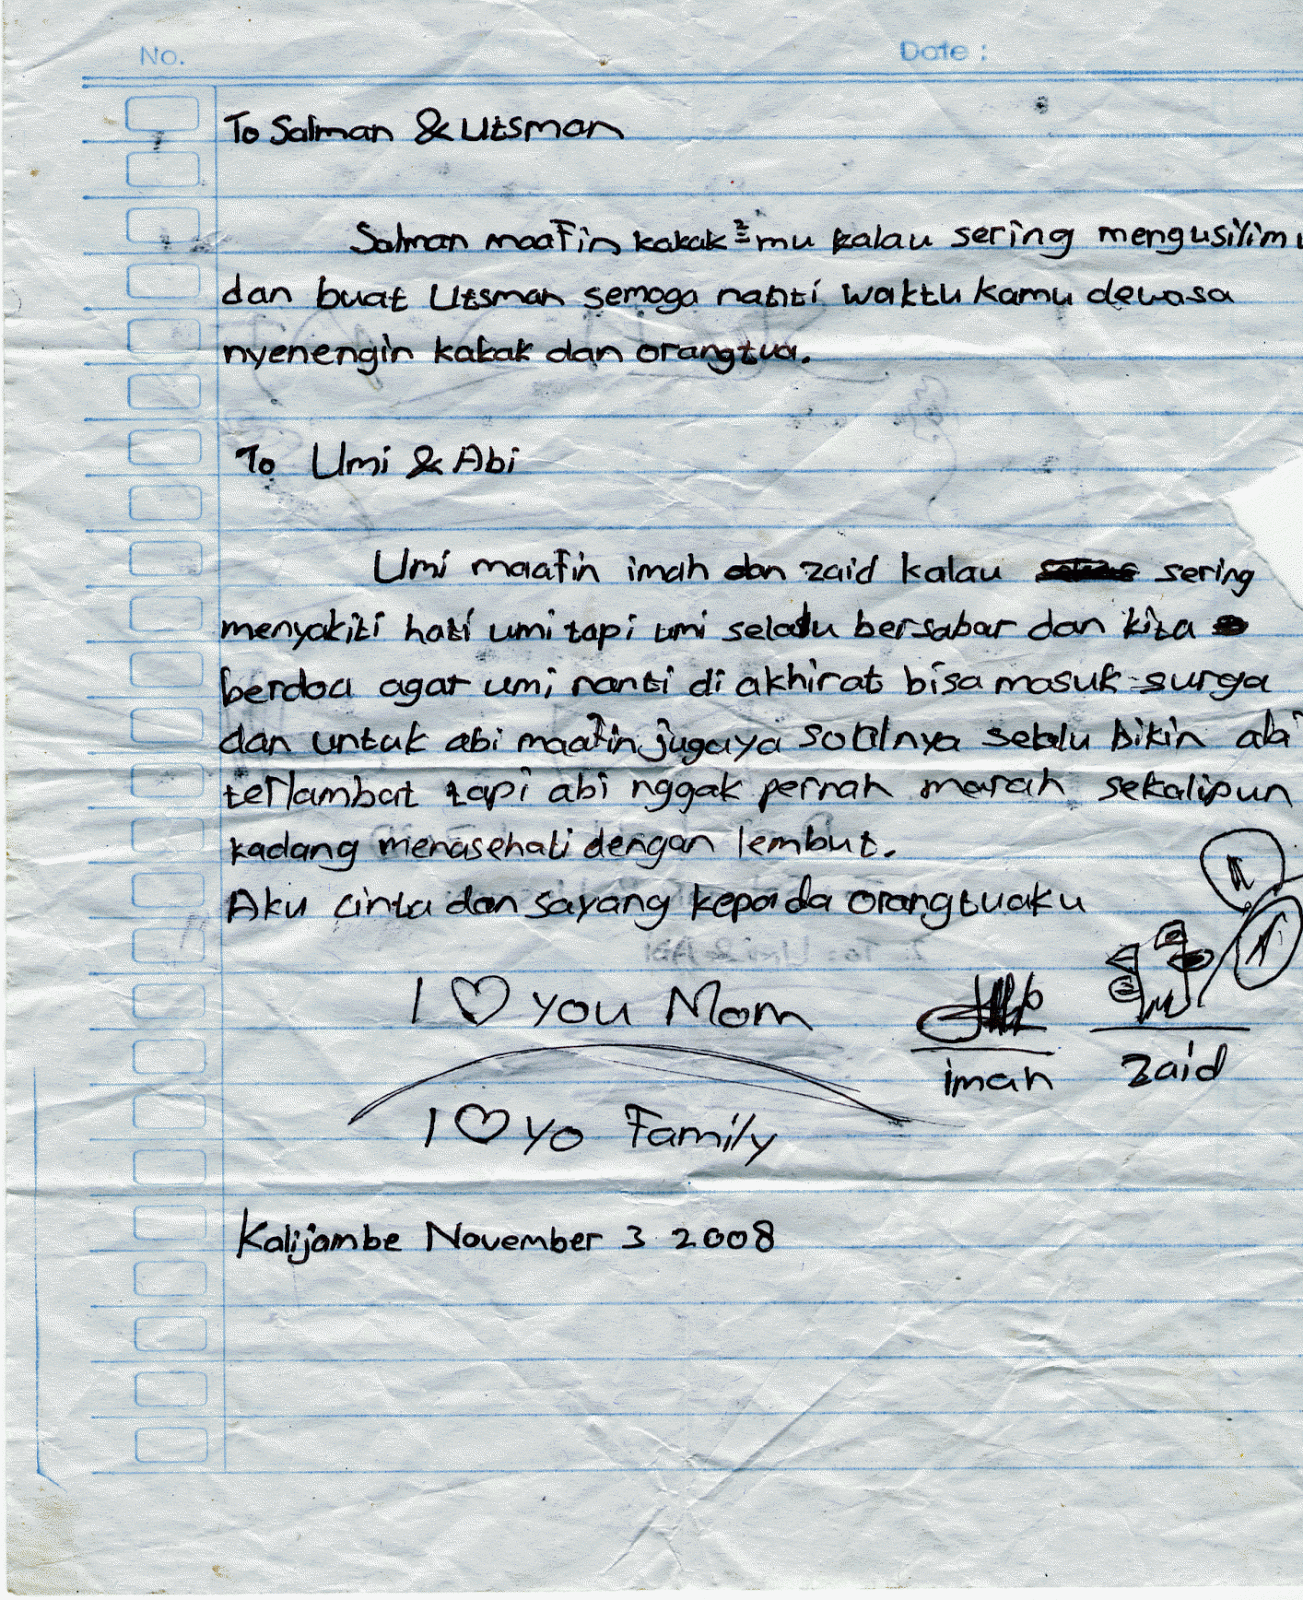 No.
Date :
To Salman & Utsman
Salman maafin kakak²mu kalau sering mengusilimu
dan buat Utsman semoga nanti waktu kamu dewasa
nyenengin kakak dan orangtua.
To Umi & Abi
Umi maafin imah dan zaid kalau sering
menyakiti hati umi tapi umi selalu bersabar dan kita
berdoa agar umi nanti di akhirat bisa masuk surga
dan untuk abi maafin jugaya soalnya selalu bikin abi
terlambat tapi abi nggak pernah marah sekalipun
kadang menasehati dengan lembut.
Aku cinta dan sayang kepada orangtuaku
I ♡ you Mom
imah
zaid
I ♡ yo Family
Kalijambe November 3 2008